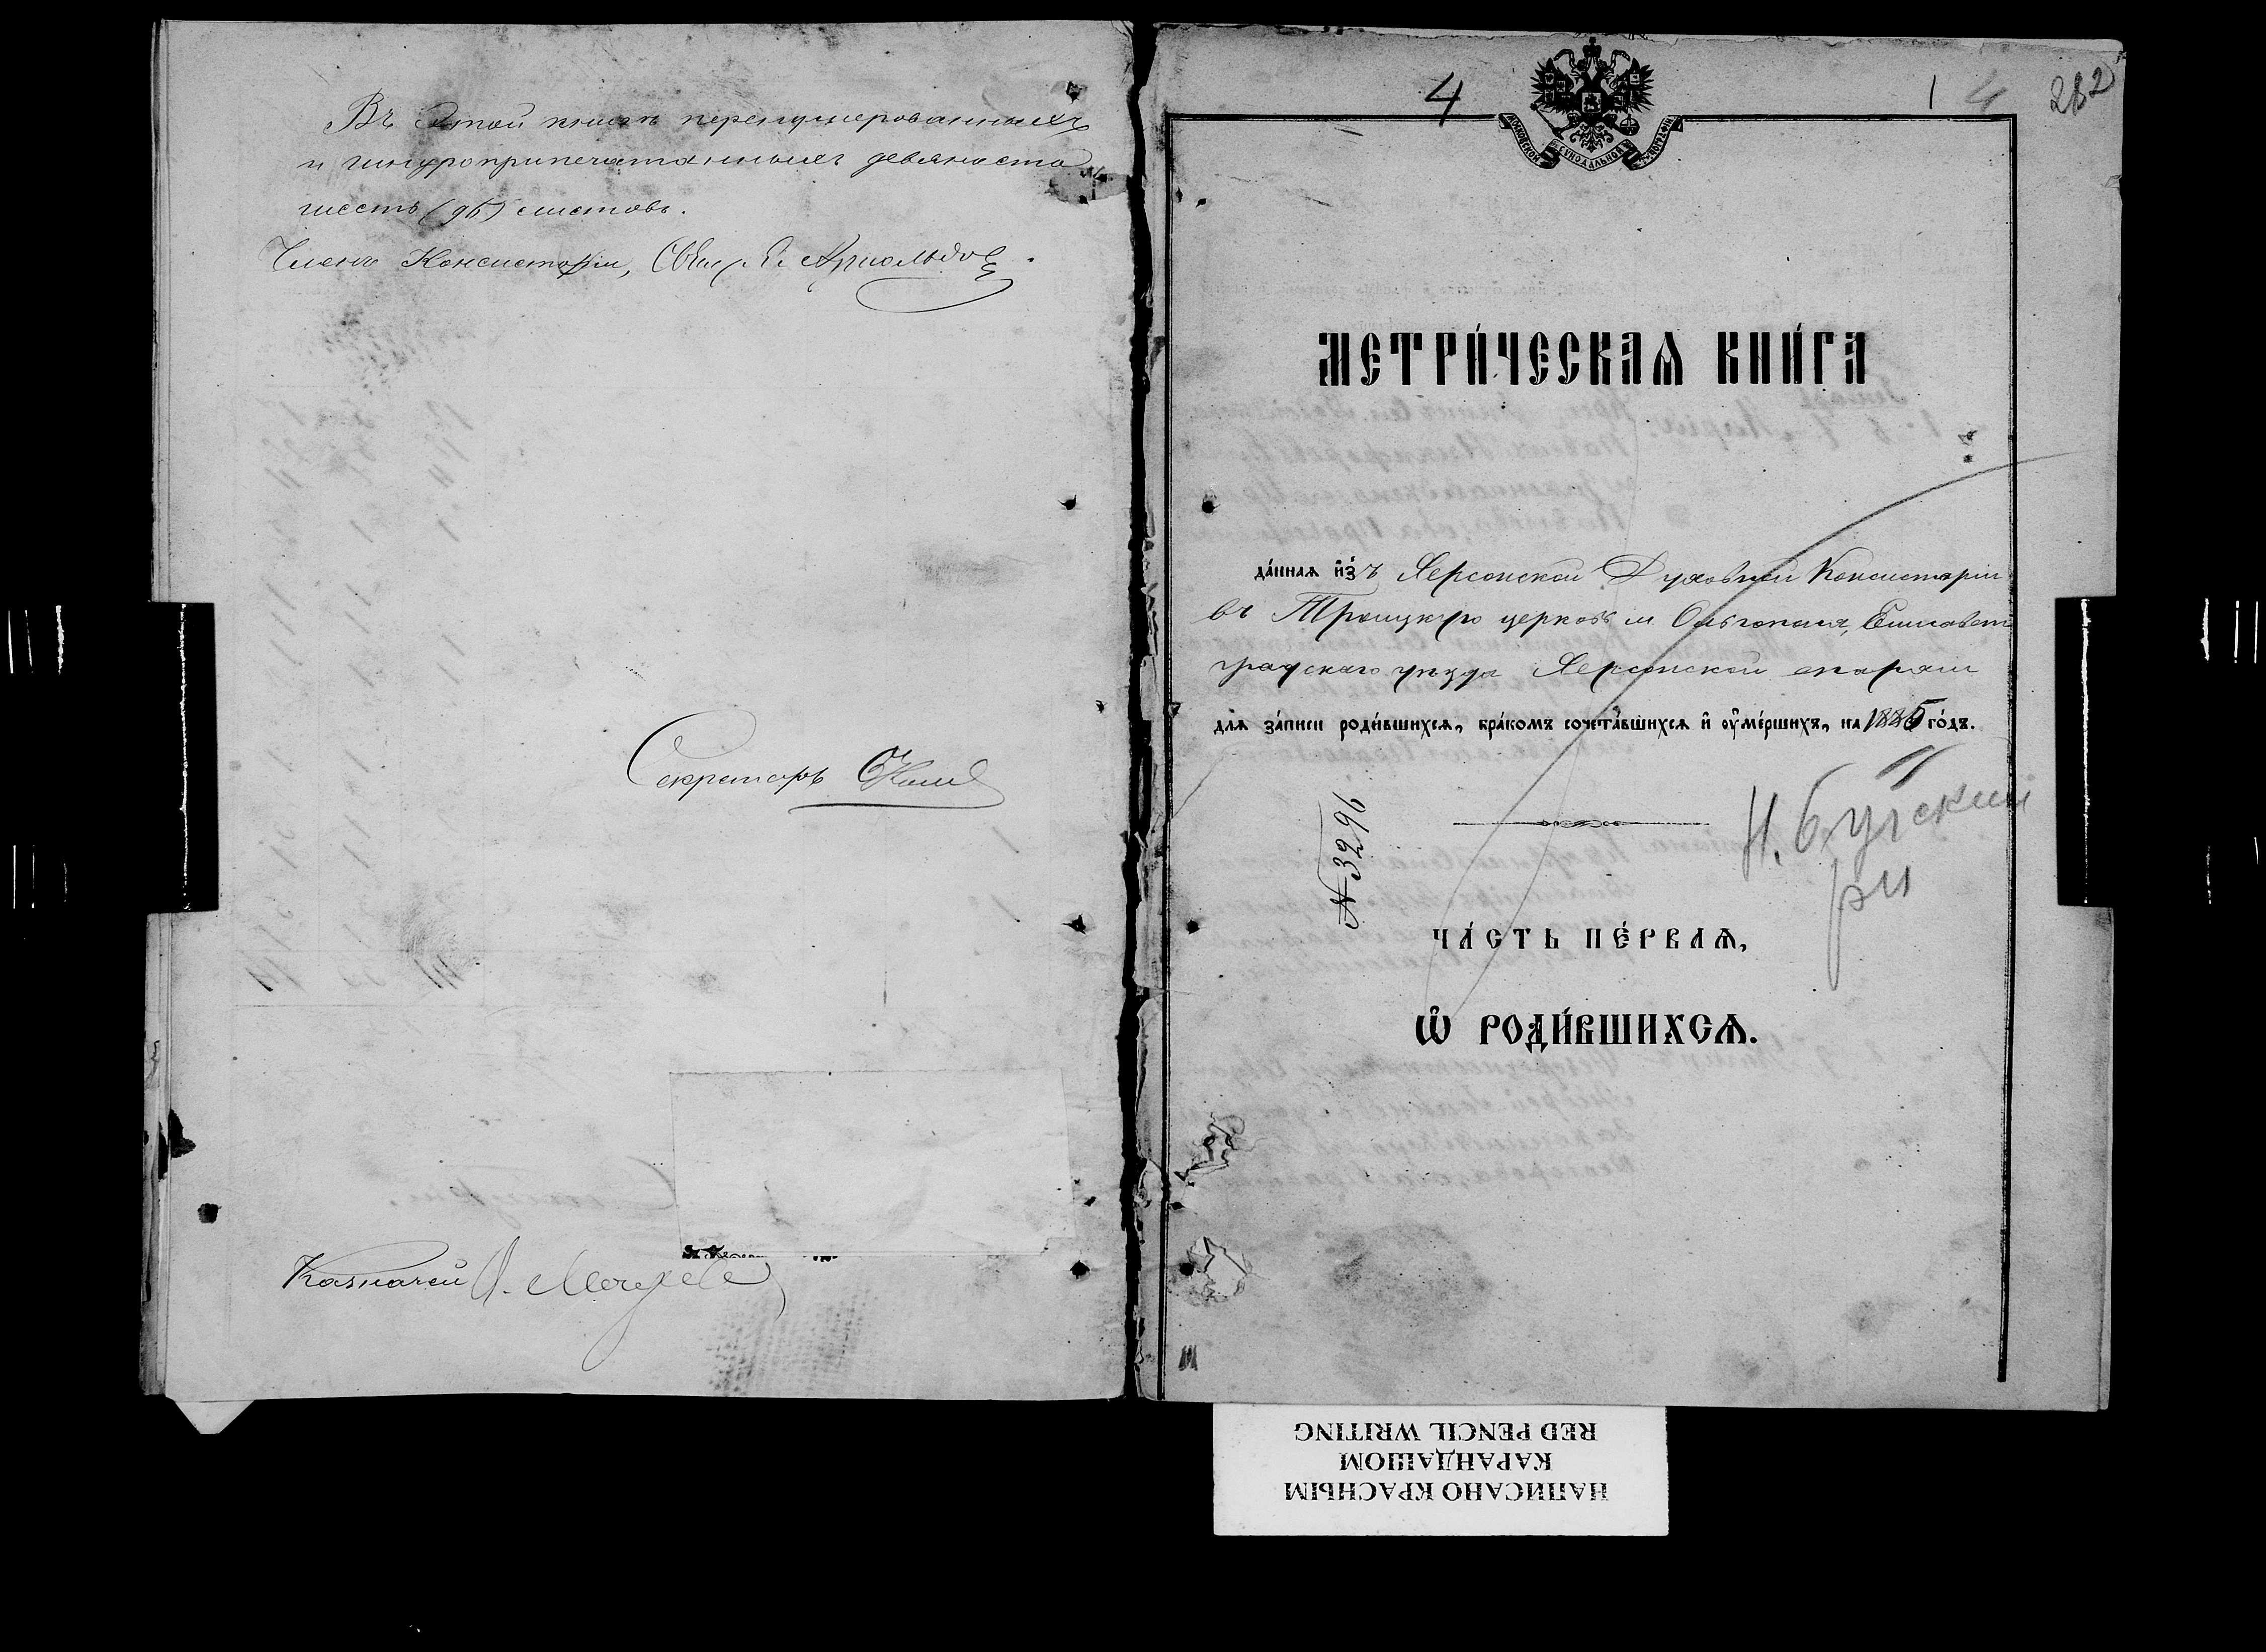 Въ этой книгѣ перенумерованныхъ
и шнуроприпечатанныхъ девяносто
шесть (96) листовъ.
Членъ Консисторіи,
Секретарь
Казначей
4
1 4
282
МОСКОВСКОЙ СѴНОДАЛЬНОЙ ТИПОГРАФІИ
МЕТРИ́ЧЕСКАѦ КНИ́ГА
да́ннаѧ и҆зъ Херсонской Духовной Консисторіи
въ Троицкую церковь м. Ольгополя, Елисавет
градскаго уѣзда Херсонской епархіи
длѧ за́писи роди́вшихсѧ, бра́комъ сочета́вшихсѧ и҆ ᲂу҆ме́ршихъ, на 1885 го́дъ.
Н. Бугский
рн
№ 3296
ЧА́СТЬ ПЕ́РВАѦ,
Ѡ҆ РОДИ́ВШИХСѦ.
НАПИСАНО КРАСНЫМ
КАРАНДАШОМ
RED PENCIL WRITING